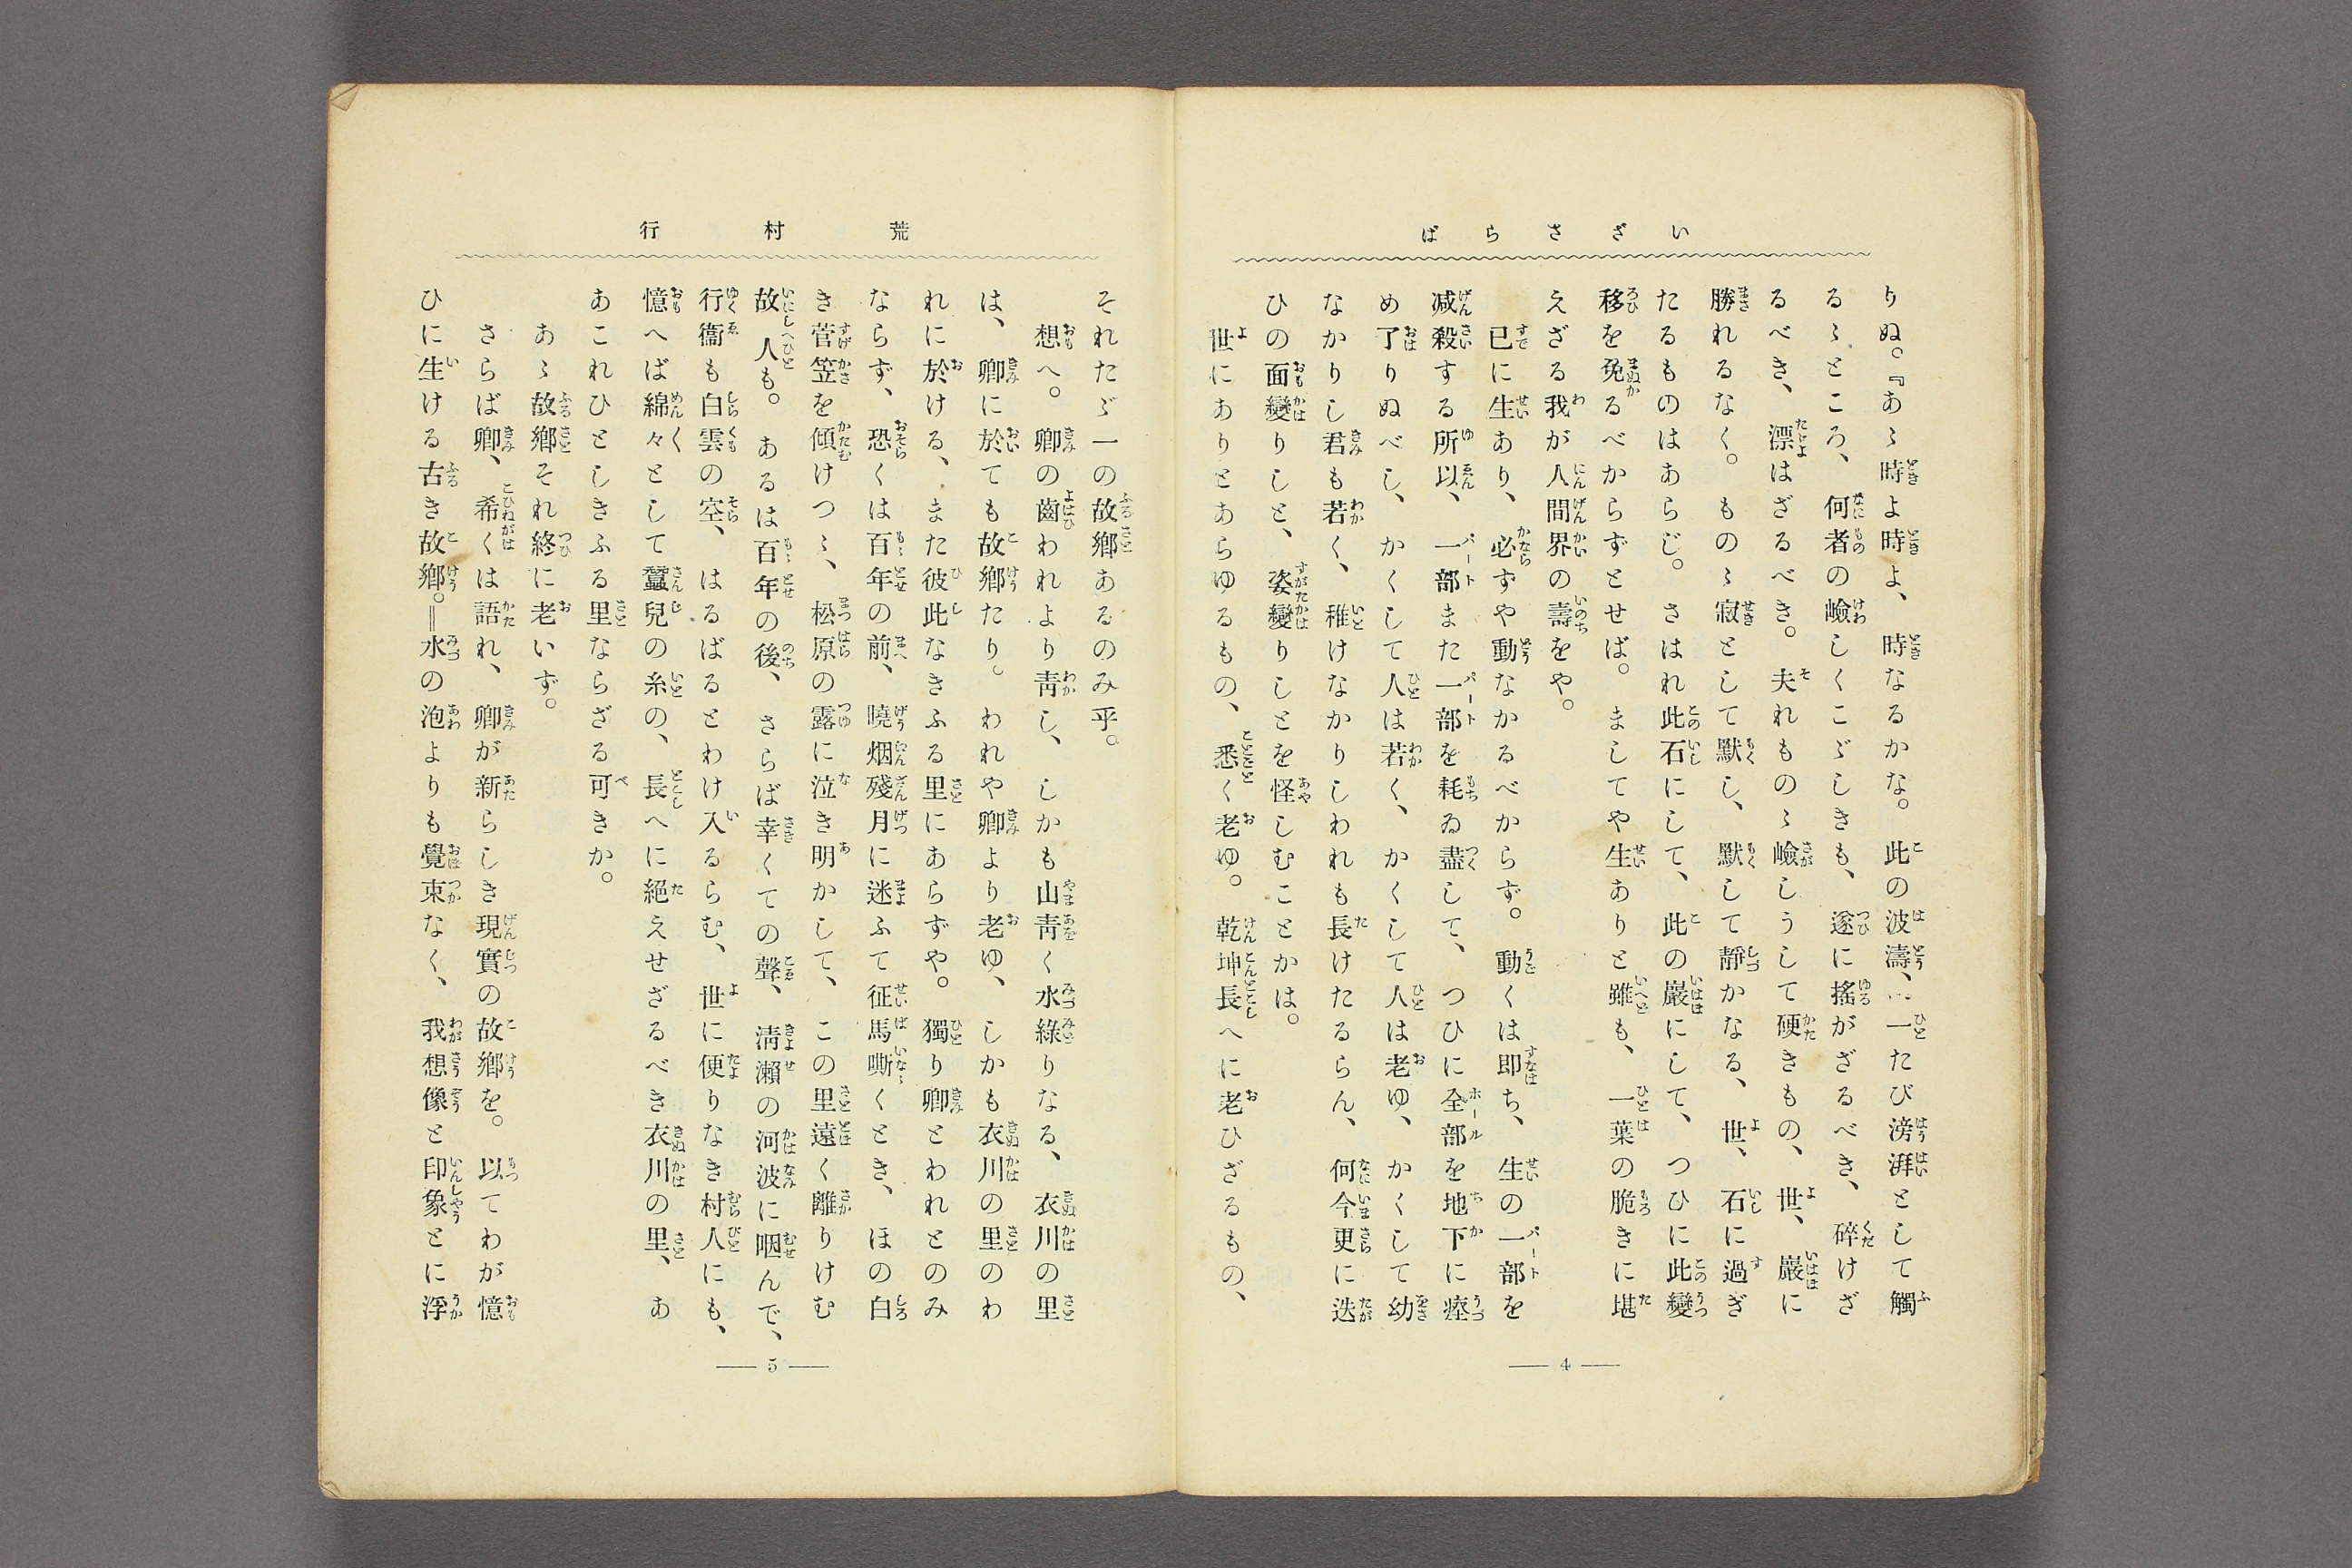 いざさらば
りぬ。『あゝ時よ時よ、時なるかな。此の波濤、…一たび滂湃として觸
るゝところ、何者の嶮しくこゞしきも、遂に搖がざるべき、碎けざ
るべき、漂はざるべき。夫れものゝ嶮しうして硬きもの、世、巖に
勝れるなく。ものゝ寂として默し、默して靜かなる、世、石に過ぎ
たるものはあらじ。さはれ此石にして、此の巖にして、つひに此變
移を免るべからずとせば。ましてや生ありと雖も、一葉の脆きに堪
えざる我が人間界の壽をや。
已に生あり、必ずや動なかるべからず。動くは即ち、生の一部を
減殺する所以、一部また一部を耗ゐ盡して、つひに全部を地下に瘞
め了りぬべし、かくして人は若く、かくして人は老ゆ、かくして幼
なかりし君も若く、稚けなかりしわれも長けたるらん、何今更に迭
ひの面變りしと、姿變りしとを怪しむことかは。
世にありとあらゆるもの、悉く老ゆ。乾坤長へに老ひざるもの、
― 4 ―
荒村行
それたゞ一の故鄕あるのみ乎。
想へ。卿の齒われより靑し、しかも山靑く水綠りなる、衣川の里
は、卿に於ても故鄕たり。われや卿より老ゆ、しかも衣川の里のわ
れに於ける、また彼此なきふる里にあらずや。獨り卿とわれとのみ
ならず、恐くは百年の前、曉烟殘月に迷ふて征馬嘶くとき、ほの白
き菅笠を傾けつゝ、松原の露に泣き明かして、この里遠く離りけむ
故人も。あるは百年の後、さらば幸くての聲、淸瀨の河波に咽んで、
行衞も白雲の空、はるばるとわけ入るらむ、世に便りなき村人にも、
憶へば綿々として蠶兒の糸の、長へに絕えせざるべき衣川の里、あ
あこれひとしきふる里ならざる可きか。
あゝ故鄕それ終に老いず。
さらば卿、希くは語れ、卿が新らしき現實の故鄕を。以てわが憶
ひに生ける古き故鄕。‖水の泡よりも覺束なく、我想像と印象とに浮
― 5 ―